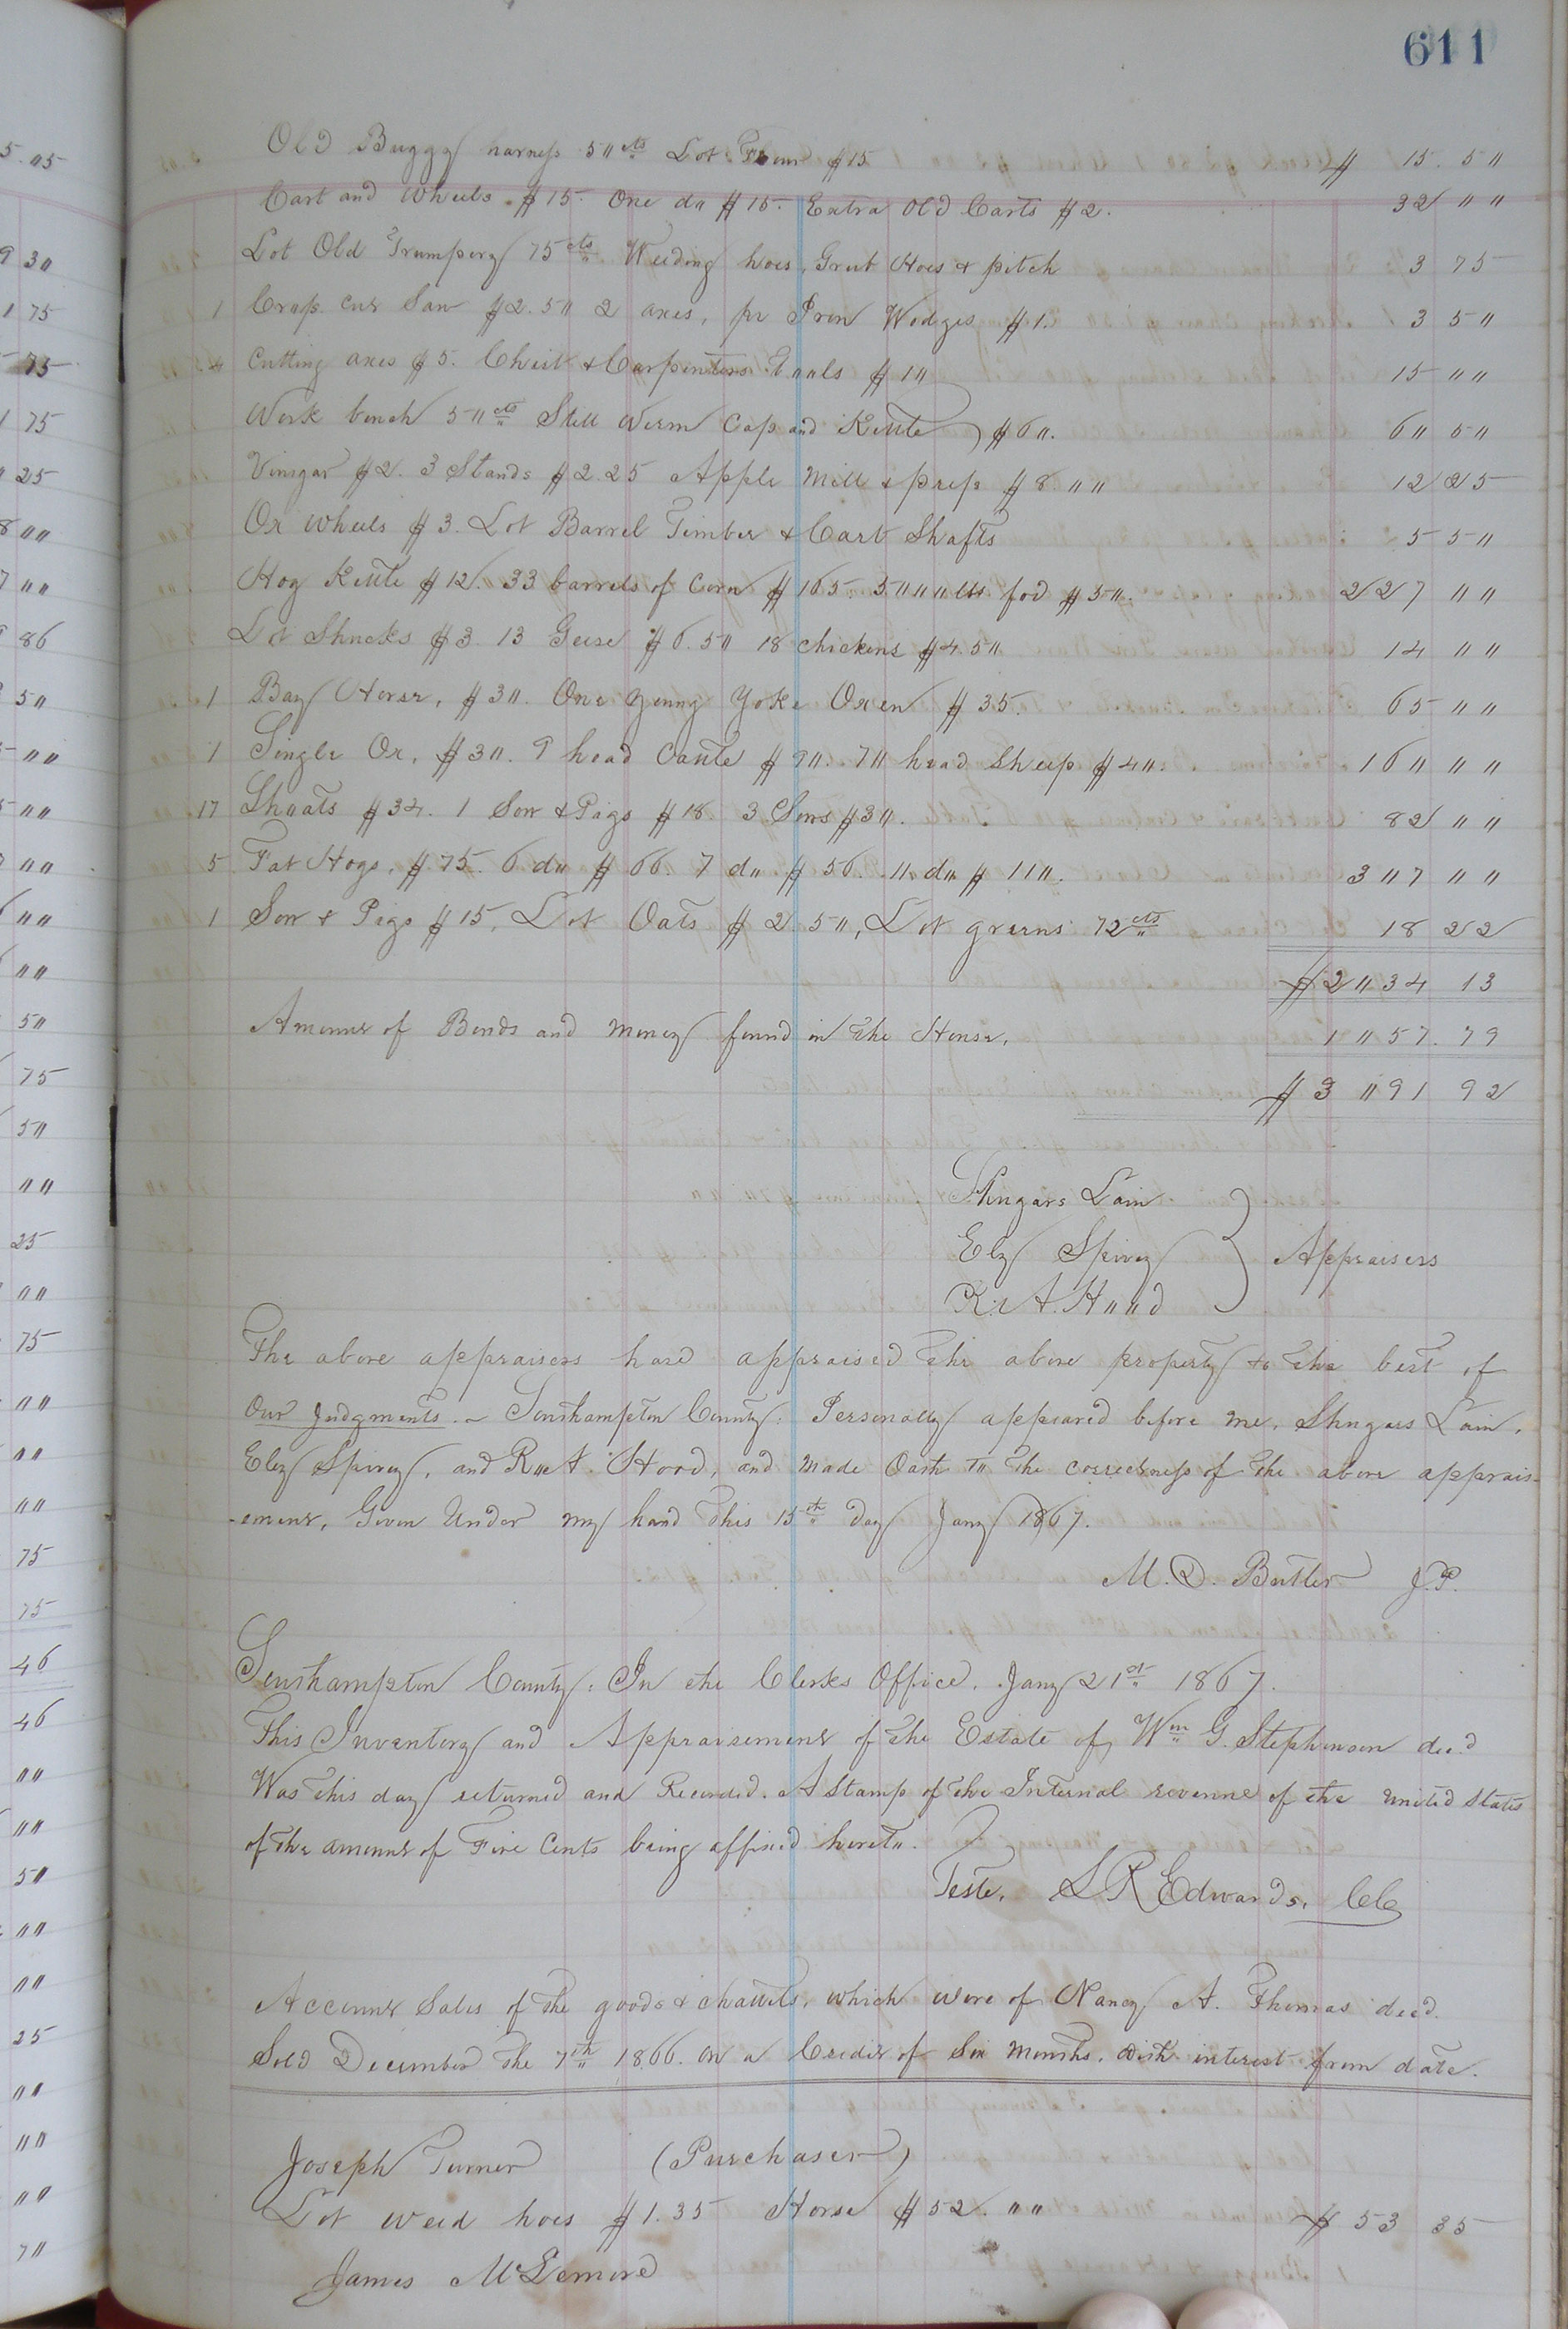 611
Old Buggy harness 5"cts Lot Plows $15 $ 15. 5"
Cart and Wheels $15. One d" $15. Extra Old Carts $2. 32 ""
Lot Old Trumpery 75cts Weeding hoes, Grub Hoes & pitch 3 75
1 Crop. cut Saw $2.5" 2 axes, pr Iron Wedges $1. 3 5"
4 Cutting axes $5. Chest & Carpenters T""ls $1" 15 ""
Work bench 5"cts Still Worm Cap and Kettle $6". 6" 5"
Vinegar $2. 3 Stands $2.25 Apple Mill & press $8 "" 12 25
Ox Wheels $3. Lot Barrel Timber & Cart Shafts 5 5"
Hog Kettle $12. 33 barrels of Corn $165. 5"""lbs fod $5". 227 ""
Lot Shucks $3. 13 Geese $6.5" 18 chickens $4.5" 14 ""
1 Bay Horse, $3". One Young Yoke Oxen $35. 65 ""
1 Single Ox, $3". 9 head Cattle $9". 7" head Sheep $4". 16" ""
17 Sh"ats $34. 1 Sow & Pigs $18 3 Sows $3". 82 ""
5 Fat Hogs, $75. 6 d" $66. 7 d" $56. 11 d" $11". 3"7 ""
1 Sow & Pigs $15, Lot Oats $2.5", Lot greens 72cts 18 22
$2"34 13
Amount of Bonds and money found in the House, 1"57.79
$3"91 92
Shugars Lain
Ely Spivey } Appraisers
R." A. H""d
The above appraisers have appraised the above property to the best of
Our Judgments. – Southampton County: Personally appeared before me, Shugars Lain,
Eley Spivey, and R" A. Hood, and made Oath t" the correctness of the above apprais-
-ement, Given Under my hand this 15th day Jany 1867.
M. D. Butler J.P.
Southampton County: In the Clerks Office, Jany 21st 1867.
This Inventory and Appraisement of the Estate of Wm G. Stephenson decd
Was this day returned and Recorded. A Stamp of the Internal revenue of the United States
of the amount of Five Cents being affixed heret".
Teste, L R Edwards, CC
Account Sales of the goods & chattels, which were of Nancy A. Thomas decd.
Sold December the 7th 1866. on a Credit of Six Months, with interest from date.
Joseph Turner (Purchaser)
Lot weed hoes $1.35 Horse $52. "" $53 35
James McLemore
5. "5
9 3"
1 75
75
1 75
" 25
8 ""
7 ""
9 86
5"
""
""
""
""
""
""
5"
75
5"
""
25
""
75
""
""
""
75
75
46
46
""
""
5"
""
""
25
""
""
""
7"